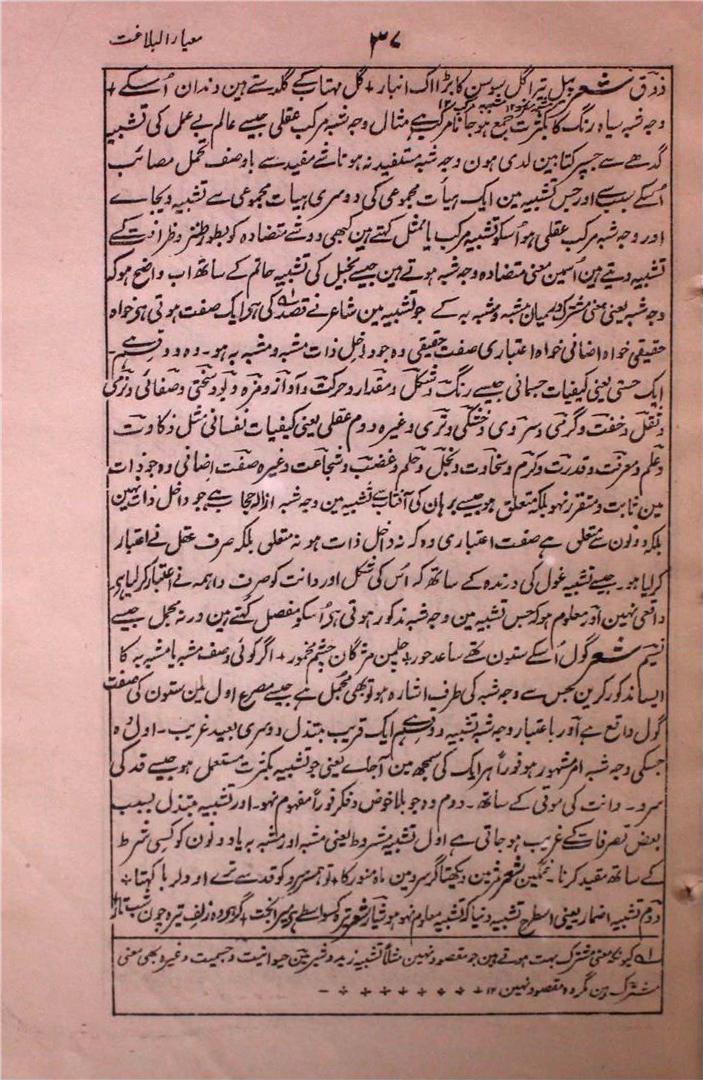 معیار البلاغت
۳۷
ذوق شعر ہیل تیرا گل سوسن کا بڑا اک انبار + گل مہتاب کے گلدستے ہین دندان اُسکے +
وجہ شبہ سیاہ رنگ کا بکثرت جمع ہو جانا مرکب ہے مثال وجہ شبہ مرکب عقلی جیسے عالم بے عمل کی تشبیہ
گدھے سے جسپر کتابین لدی ہون وجہ شبہ مستفید نہ ہونا شے مفید سے باوصف تحمل مصائب
اُسکے سبب سے اور جس تشبیہ مین ایک ہیأت مجموعی کی دوسری ہیأت مجموعی سے تشبیہ دیجاے
اور وجہ شبہ مرکب عقلی ہو اُسکو تشبیہ مرکب یا ممثل کہتے ہین کبھی دو شے متضادہ کو بطور طنز و ظرافت کے
تشبیہ دیتے ہین اُسمین معنی متضادہ وجہ شبہ ہوتے ہین جیسے بخیل کی تشبیہ حاتم کے ساتھ اب واضح ہو کہ
وجہ شبہ یعنی معنی مشترک درمیان مشبہ و مشبہ بہ کے جو تشبیہ مین شاعر نے قصد کی ہی ایک صفت ہوتی ہی خواہ
حقیقی خواہ اضافی خواہ اعتباری صفت حقیقی وہ جو داخل ذات مشبہ و مشبہ بہ ہو۔ وہ دو قسم ہے۔
ایک حسی یعنی کیفیات جسمانی جیسے رنگ و شکل و مقدار و حرکت و آواز و مزہ و بو و سختی و صفائی و نرمی
و ثقل و خفت و گرمی و سردی و خشکی و تری وغیرہ دوم عقلی یعنی کیفیات نفسانی مثل ذکاوت
و علم و معرفت و قدرت و کرم و سخاوت و بخل و حلم و غضب و شجاعت وغیرہ صفت اضافی وہ جو ذات
مین ثابت و متقرر نہو بلکہ متعلق ہو جیسے برہان کی آفتاب سے تشبیہ مین وجہ شبہ ازالہ حجاب ہے جو داخل ذات نہین
بلکہ دونون سے متعلق ہے صفت اعتباری وہ کہ نہ داخل ذات ہو نہ متعلق بلکہ صرف عقل نے اعتبار
کر لیا ہو۔ جیسے تشبیہ غول کی درندہ کے ساتھ کہ اُس کی شکل اور دانت کو صرف واہمہ نے اعتبار کر لیا ہی
واقعی نہین اور معلوم ہو کہ جس تشبیہ مین وجہ شبہ مذکور ہوتی ہی اُسکو مفصل کہتے ہین ورنہ مجمل جیسے
نسیم شعر گول اُسکے ستون تھے ساعد حور + چلمن مژگان چشم مخمور + اگر کوئی وصف مشبہ یا مشبہ بہ کا
ایسا مذکور کرین جس سے وجہ شبہ کی طرف اشارہ ہو تو بھی مجمل ہے جیسے مصرع اول مین ستون کی صفت
گول واقع ہے اور باعتبار وجہ شبہ تشبیہ دو قسم ہے ایک قریب مبتذل دوسری بعید غریب۔ اول وہ
جسکی وجہ شبہ امر مشہور ہو فوراً ہر ایک کی سمجھ مین آجاے یعنی جو تشبیہ بکثرت مستعمل ہو جیسے قد کی
سرو۔ دانت کی موتی کے ساتھ۔ دوم وہ جو بلا خوض و فکر فوراً مفہوم نہو۔ اور تشبیہ مبتذل بسبب
بعض تصرفات کے غریب ہو جاتی ہے اول تشبیہ مشروط یعنی مشبہ اور مشبہ بہ یا دونون کو کسی شرط
کے ساتھ مقید کرنا۔ غمگین شعر زمین دیکھتا گر سرو مین ماہ منور کا + تو ہمسرو کو قد سے ترے او دلربا کہتا +
دوم تشبیہ اضمار یعنی اسطرح تشبیہ دینا کہ تشبیہ معلوم نہو شعر تیرہ کسواسطے ہی میرا بخت + گر وہ زلف تیرہ جون شب تار
۱؎ کیونکہ معنی مشترک بہت ہوتے ہین جو مقصود نہین مثلاً تشبیہ زید و شیر مین حیوانیت و جسمیت وغیرہ بھی معنی
مشترک ہین مگر وہ مقصود نہین ۱۲